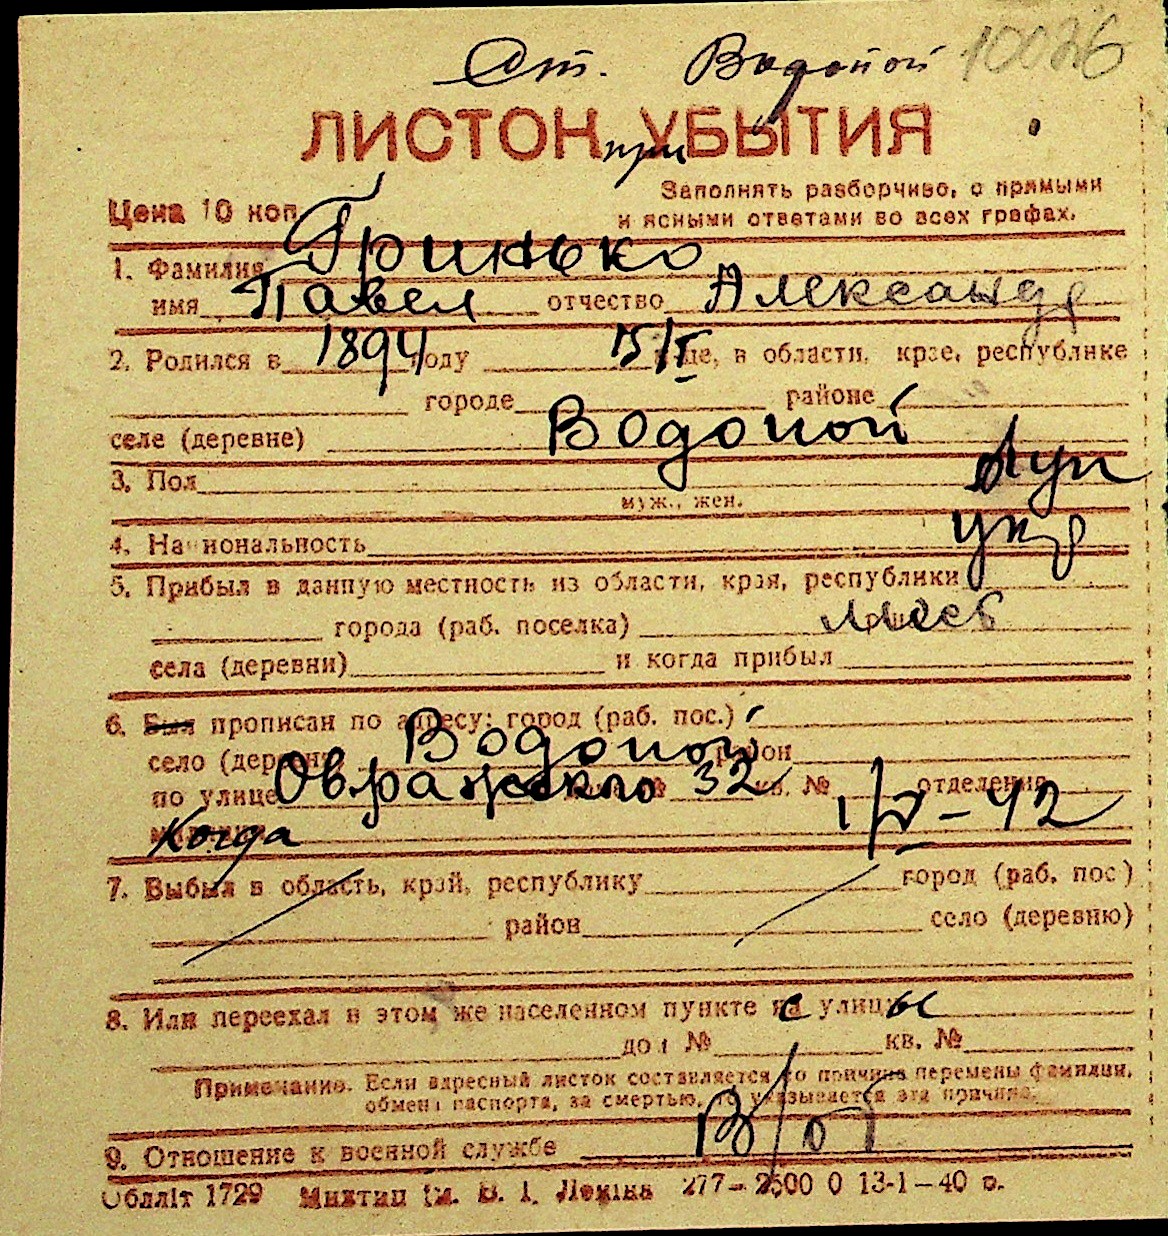 Ст. Водопой 10026
ЛИСТОН УБЫТИЯ
при
Цена 10 коп. Заполнять разборчиво, с прямыми
и ясными ответами во всех графах.
1. Фамилия Гринько
имя Павел отчество Александр
2. Родился в 1894 году 15/I еще, в области, крае, республике
городе районе
селе (деревне) Водопой
3. Пол
муж., жен.
4. Национальность укр
5. Прибыл в данную местность из области, края, республики
города (раб. поселка)
села (деревни) и когда прибыл
6. Был прописан по адресу: город (раб. пос.)
село (деревне) Водопой район
по улице Овражского 32 кв. № отделения
Когда 1/V-42
7. Выбыл в область, край, республику город (раб. пос.)
район село (деревню)
8. Или переехал в этом же населенном пункте с улицы
дом № кв. №
Примечание. Если адресный листок составляется по причине перемены фамилии,
обмена паспорта, за смертью, то указывается эта причина.
9. Отношение к военной службе В/об
Обллiт 1729 Миктип iм. В. I. Ленiна 277-2500 0 13-1-40 р.